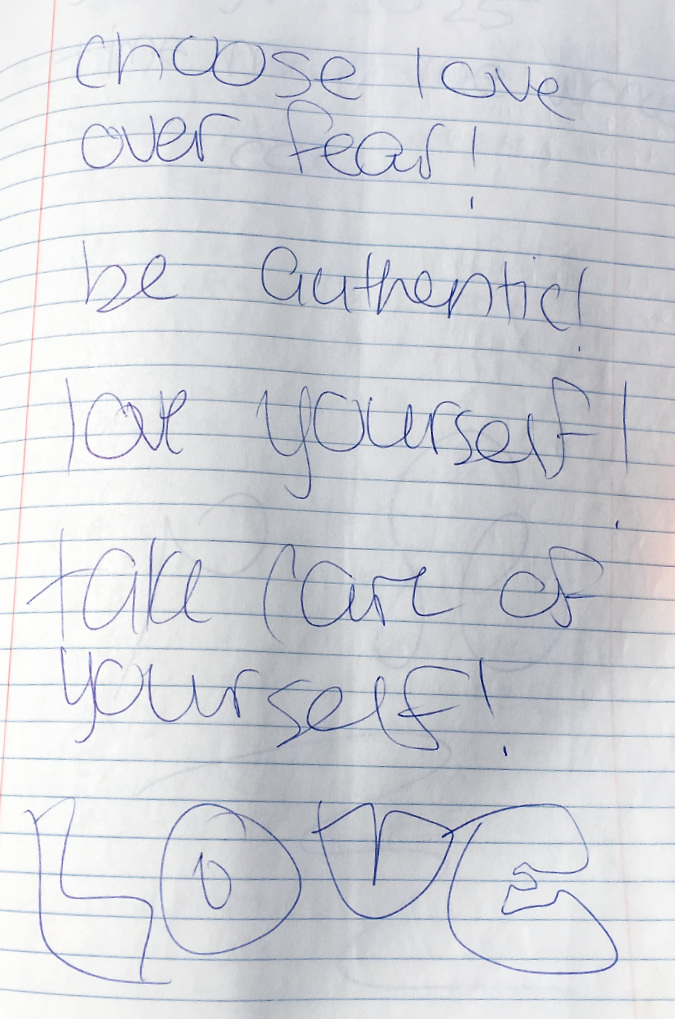 choose love
over fear!
be authentic!
love yourself!
take care of
yourself!
LOVE